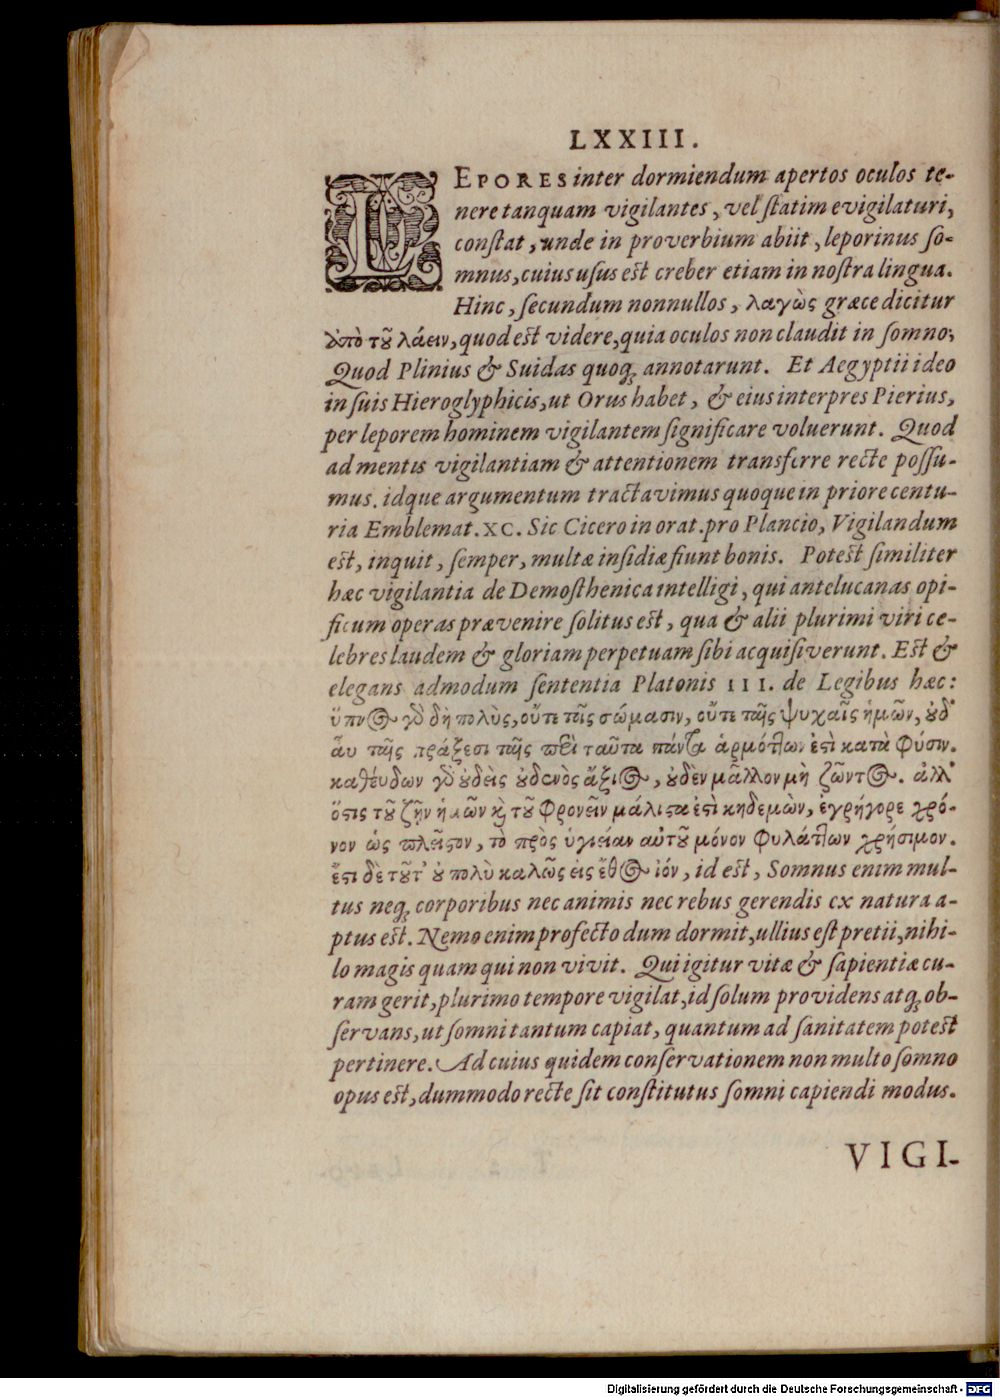 LXXIII.
LEPORES inter dormiendum apertos oculos te-
nere tanquam vigilantes, vel statim evigilaturi,
constat, unde in proverbium abiit, leporinus so-
mnus, cuius usus est creber etiam in nostra lingua.
Hinc, secundum nonnullos, λαγὼς græce dicitur
ἀπὸ τοῦ λάειν, quod est videre, quia oculos non claudit in somno;
Quod Plinius & Suidas quoq; annotarunt. Et Aegyptii ideo
in suis Hieroglyphicis, ut Orus habet, & eius interpres Pierius,
per leporem hominem vigilantem significare voluerunt. Quod
ad mentis vigilantiam & attentionem transferre recte possu-
mus. idque argumentum tractavimus quoque in priore centu-
ria Emblemat. XC. Sic Cicero in orat. pro Plancio, Vigilandum
est, inquit, semper, multæ insidiæ fiunt bonis. Potest similiter
hæc vigilantia de Demosthenica intelligi, qui antelucanas opi-
ficum operas prævenire solitus est, qua & alii plurimi viri ce-
lebres laudem & gloriam perpetuam sibi acquisiverunt. Est &
elegans admodum sententia Platonis III. de Legibus hæc:
ὕπνος γὸ δὴ πολὺς, οὔτε τοῖς σώμασιν, οὔτε ταῖς ψυχαῖς ἡμῶν, οὐδ'
ἂυ ταῖς πράξεσι ταῖς περὶ ταῦτα πάντα ἁρμότων ἐστὶ κατὰ φύσιν.
καθέυδων γὸ οὐδεὶς οὐδενὸς ἄξιος, οὐδὲν μᾶλλον μὴ ζῶντος. ἀλλ'
ὅστις τοῦ ζῆν ἡμῶν καὶ τοῦ φρονεῖν μάλιστα ἐστὶ κηδεμὼν, ἐγρήγορε χρό-
νον ὡς πλεῖστον, τὸ πρὸς ὑγιείαν αὐτοῦ μόνον φυλάττων χρήσιμον.
ἔστι δὲ τοῦτ' οὐ πολὺ καλῶς εἰς ἔθος ἰόν, id est, Somnus enim mul-
tus neq; corporibus nec animis nec rebus gerendis ex natura a-
ptus est. Nemo enim profecto dum dormit, ullius est pretii, nihi-
lo magis quam qui non vivit. Qui igitur vitæ & sapientiæ cu-
ram gerit, plurimo tempore vigilat, id solum providens atq; ob-
servans, ut somni tantum capiat, quantum ad sanitatem potest
pertinere. Ad cuius quidem conservationem non multo somno
opus est, dummodo recte sit constitutus somni capiendi modus.
VIGI-
Digitalisierung gefördert durch die Deutsche Forschungsgemeinschaft - DFG